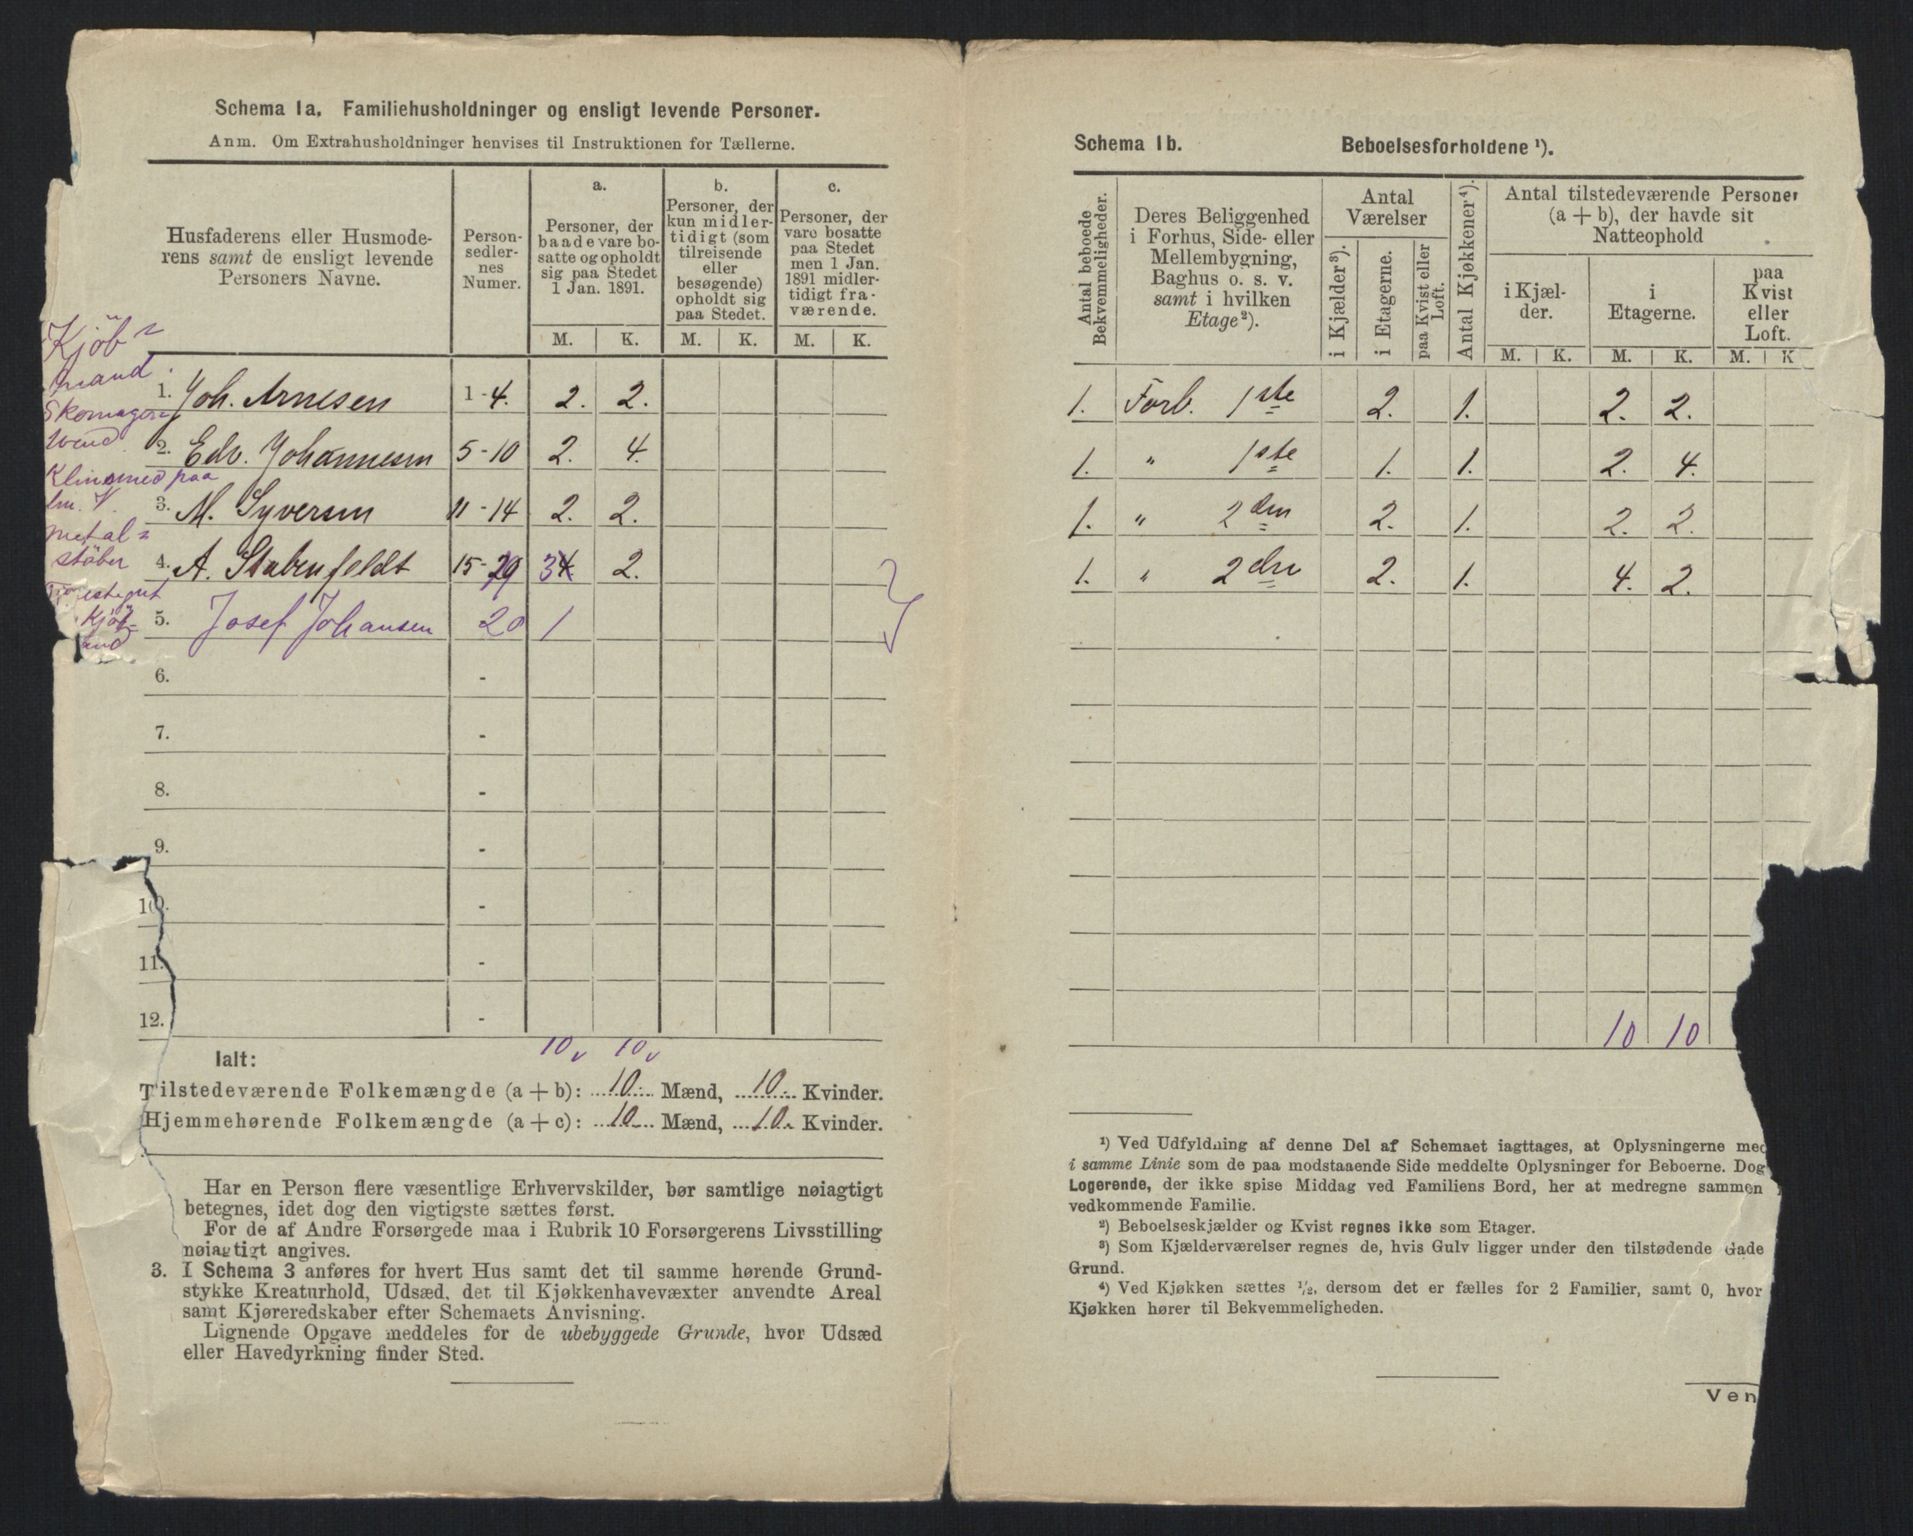 Schema 1a. Familiehusholdninger og ensligt levende Personer.
Anm. Om Extrahusholdninger henvises til Instruktionen for Tællerne.
Husfaderens eller Husmode-
rens samt de ensligt levende
Personers Navne.
Person-
sedler-
nes
Numer.
a.
Personer, der
baade vare bo-
satte og opholdt
sig paa Stedet
1 Jan. 1891.
b.
Personer, der
kun midler-
tidigt (som
tilreisende
eller
besøgende)
opholdt sig
paa Stedet.
c.
Personer, der
vare bosatte
paa Stedet
men 1 Jan.
1891 midler-
tidigt fra-
værende.
M. K. M. K. M. K.
Kjöb-
mand.
1. Joh. Arnesen 1-4. 2. 2.
Skomager
svend.
2. Edv. Johannesen 5-10 2. 4.
paa
3. M. Syversen 11-14 2. 2.
metal-
stöber
4. A. Stabenfeldt 15-19 3 2.
5. Josef Johansen 20 1
6. -
7. -
8. -
9. -
10. -
11. -
12. -
10 10
Ialt:
Tilstedeværende Folkemængde (a + b): 10. Mænd, 10. Kvinder.
Hjemmehørende Folkemængde (a + c): 10 Mænd, 10. Kvinder.
Har en Person flere væsentlige Erhvervskilder, bør samtlige nøiagtigt
betegnes, idet dog den vigtigste sættes først.
For de af Andre Forsørgede maa i Rubrik 10 Forsørgerens Livsstilling
nøiagtigt angives.
3. I Schema 3 anføres for hvert Hus samt det til samme hørende Grund-
stykke Kreaturhold, Udsæd, det til Kjøkkenhavevæxter anvendte Areal
samt Kjøreredskaber efter Schemaets Anvisning.
Lignende Opgave meddeles for de ubebyggede Grunde, hvor Udsæd
eller Havedyrkning finder Sted.
Schema 1b. Beboelsesforholdene ¹).
Antal beboede
Bekvemmeligheder.
Deres Beliggenhed
i Forhus, Side- eller
Mellembygning,
Baghus o. s. v.
samt i hvilken
Etage²).
Antal
Værelser
i Kjælder³).
i Etagerne.
paa Kvist eller
Loft.
Antal Kjøkkener⁴).
Antal tilstedeværende Personer
(a + b), der havde sit
Natteophold
i Kjæl-
der.
i
Etagerne.
paa
Kvist
eller
Loft.
M. K. M. K. M. K
1. Forb. 1ste 2. 1. 2. 2.
1. " 1ste 1. 1. 2. 4.
1. " 2den 2. 1. 2. 2.
1. " 2den 2. 1. 4. 2.
10 10
¹) Ved Udfyldning af denne Del af Schemaet iagttages, at Oplysningerne med
i samme Linie som de paa modstaaende Side meddelte Oplysninger for Beboerne. Dog
Logerende, der ikke spise Middag ved Familiens Bord, her at medregne sammen
vedkommende Familie.
²) Beboelseskjælder og Kvist regnes ikke som Etager.
³) Som Kjælderværelser regnes de, hvis Gulv ligger under den tilstødende Gade
Grund.
⁴) Ved Kjøkken sættes ¹/₂, dersom det er fælles for 2 Familier, samt 0, hvor
Kjøkken hører til Bekvemmeligheden.
Ven